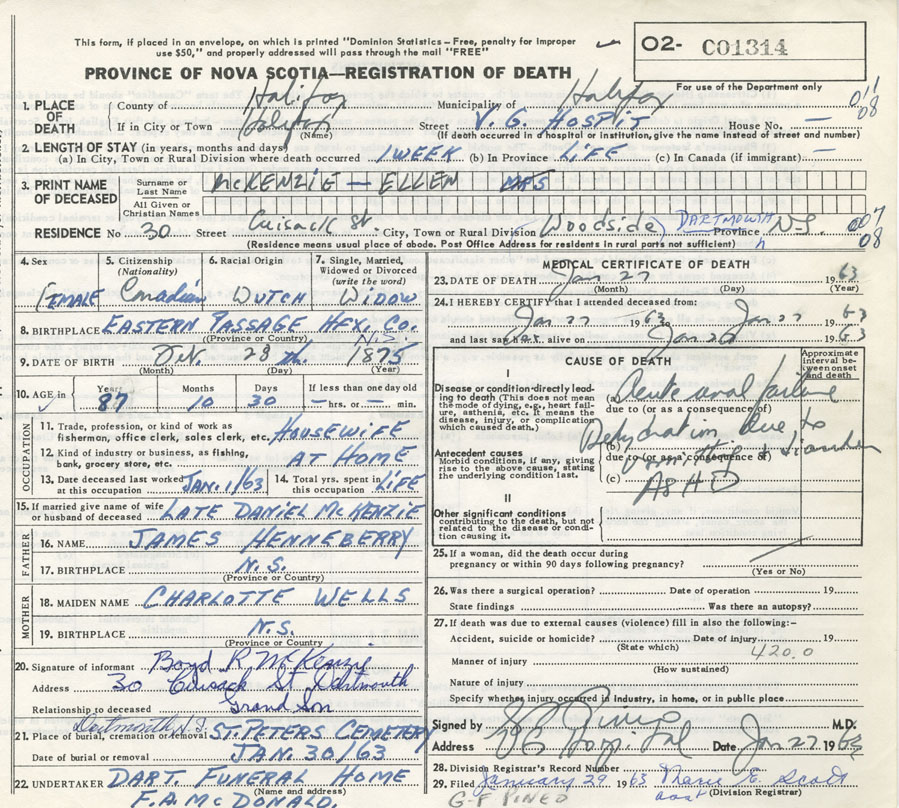 This form, if placed in an envelope, on which is printed "Dominion Statistics – Free, penalty for improper
use $50," and properly addressed will pass through the mail "FREE"
O2- C01314
PROVINCE OF NOVA SCOTIA—REGISTRATION OF DEATH
For use of the Department only
1. PLACE OF DEATH
County of Halifax Municipality of Halifax 011
If in City or Town Halifax (Name) Street V. G. HOSPIT House No. — 08
(If death occurred in a hospital or institution, give the name instead of street and number)
2. LENGTH OF STAY (in years, months and days)
(a) In City, Town or Rural Division where death occurred 1 WEEK (b) In Province LIFE (c) In Canada (if immigrant) —
3. PRINT NAME OF DECEASED
Surname or Last Name McKENZIE — ELLEN MRS
All Given or Christian Names
RESIDENCE No 30 Street Cuisack St. City, Town or Rural Division Woodside, DARTMOUTH Province N.S. 007
08
(Residence means usual place of abode. Post Office Address for residents in rural parts not sufficient)
4. Sex FEMALE
5. Citizenship (Nationality) Canadian
6. Racial Origin DUTCH
7. Single, Married, Widowed or Divorced (write the word) WIDOW
8. BIRTHPLACE EASTERN PASSAGE HFX. CO. N.S.
(Province or Country)
9. DATE OF BIRTH 28 th. 1875
(Month) (Day) (Year)
10. AGE in Years 87 Months 10 Days 30 If less than one day old — hrs. or — min.
OCCUPATION
11. Trade, profession, or kind of work as fisherman, office clerk, sales clerk, etc. HOUSEWIFE
12. Kind of industry or business, as fishing, bank, grocery store, etc. AT HOME
13. Date deceased last worked at this occupation JAN. 1/63 14. Total yrs. spent in this occupation LIFE
15. If married give name of wife or husband of deceased LATE DANIEL McKENZIE
FATHER
16. NAME JAMES HENNEBERRY
17. BIRTHPLACE N.S.
(Province or Country)
MOTHER
18. MAIDEN NAME CHARLOTTE WELLS
19. BIRTHPLACE N.S.
(Province or Country)
20. Signature of informant Boyd R McKenzie
Address 30 Cuisack St Dartmouth
Relationship to deceased Grand Son
Dartmouth, N.S.
21. Place of burial, cremation or removal ST. PETERS CEMETERY
Date of burial or removal JAN. 30/63
22. UNDERTAKER DART. FUNERAL HOME
(Name and address)
F. A. McDONALD.
MEDICAL CERTIFICATE OF DEATH
23. DATE OF DEATH Jan 27 1963
(Month) (Day) (Year)
24. I HEREBY CERTIFY that I attended deceased from:
Jan 27 1963 to Jan 27 1963
and last saw h alive on Jan 1963
CAUSE OF DEATH
Approximate interval between onset and death
I
Disease or condition directly leading to death (This does not mean the mode of dying, e.g., heart failure, asthenia, etc. It means the disease, injury, or complication which caused death.)
(a) Acute renal failure
due to (or as a consequence of)
Antecedent causes
Morbid conditions, if any, giving rise to the above cause, stating the underlying condition last.
(b) Dehydration due to
due to (or as a consequence of)
(c) ASHD
II
Other significant conditions
contributing to the death, but not related to the disease or condition causing it.
25. If a woman, did the death occur during pregnancy or within 90 days following pregnancy?
(Yes or No)
26. Was there a surgical operation? Date of operation 19
State findings Was there an autopsy?
27. If death was due to external causes (violence) fill in also the following:–
Accident, suicide or homicide? Date of injury 19
(State which) 420.0
Manner of injury
(How sustained)
Nature of injury
Specify whether injury occurred in industry, in home, or in public place
Signed by M.D.
Address Hospital Date Jan 27 1963
28. Division Registrar's Record Number
29. Filed January 29 1963 Marie E. Scott
(Division Registrar)